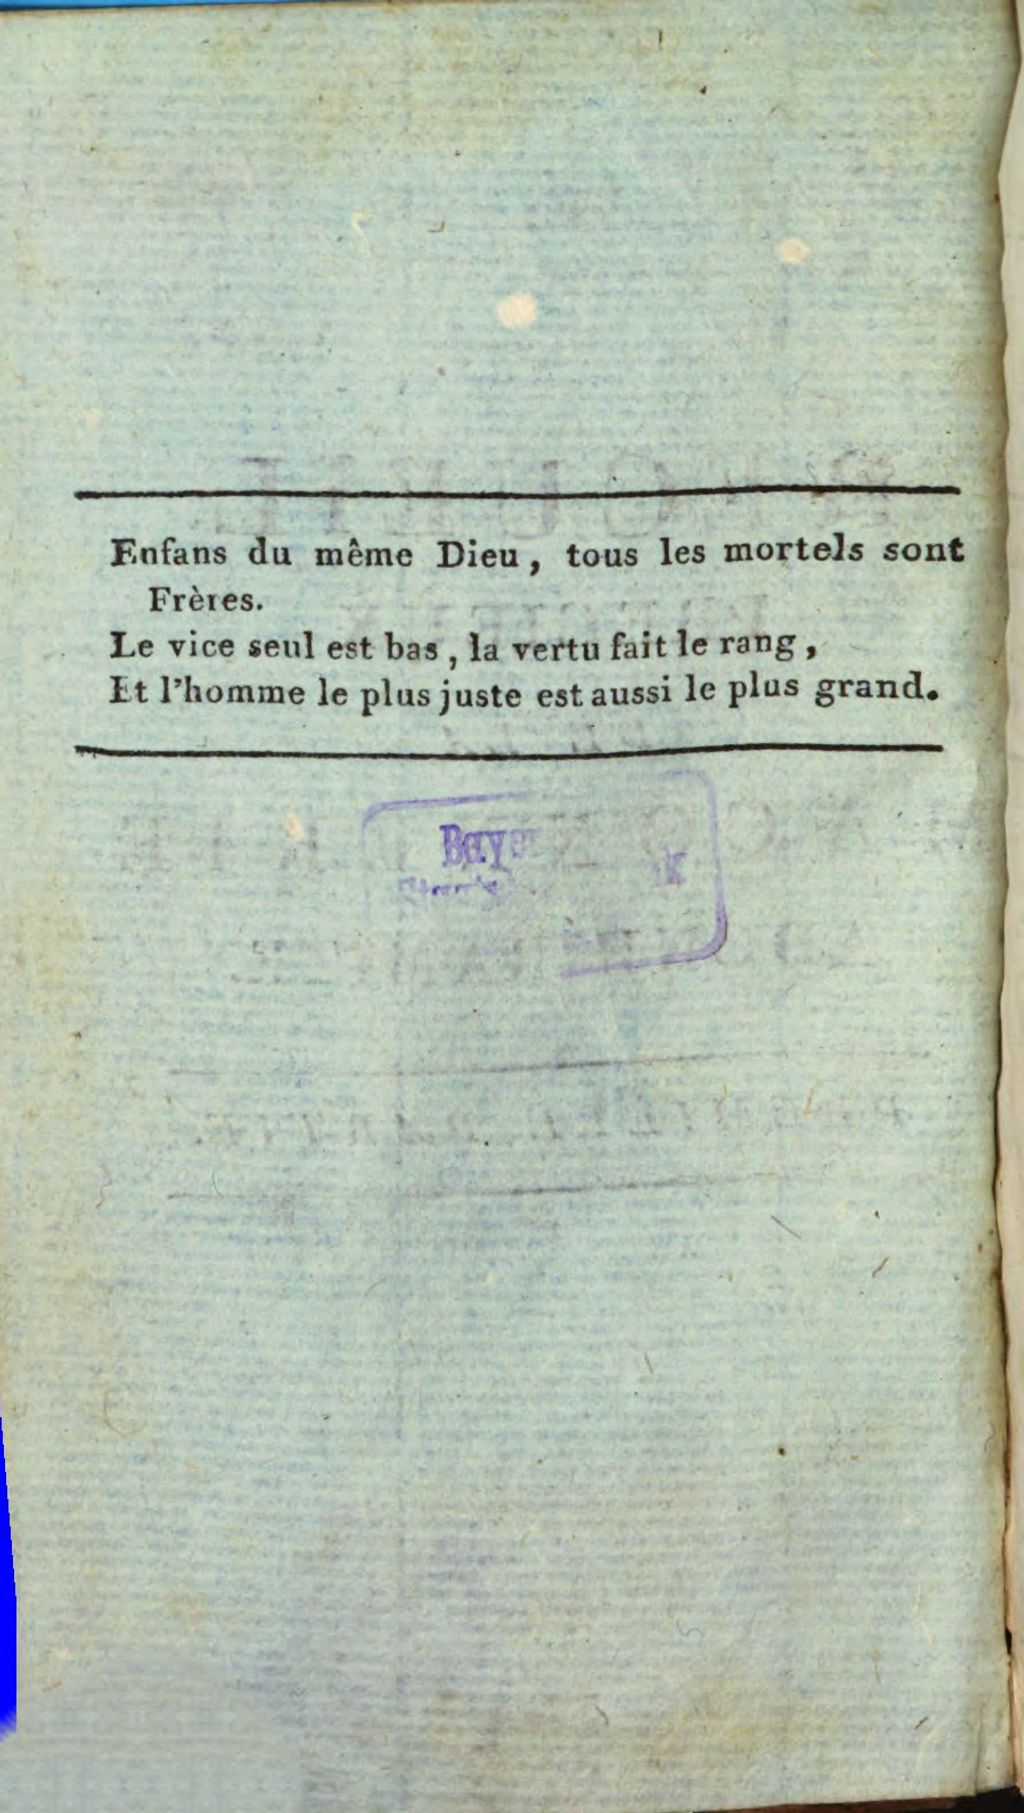 Enfans du même Dieu, tous les mortels sont
Frères.
Le vice seul est bas, la vertu fait le rang,
Et l'homme le plus juste est aussi le plus grand.